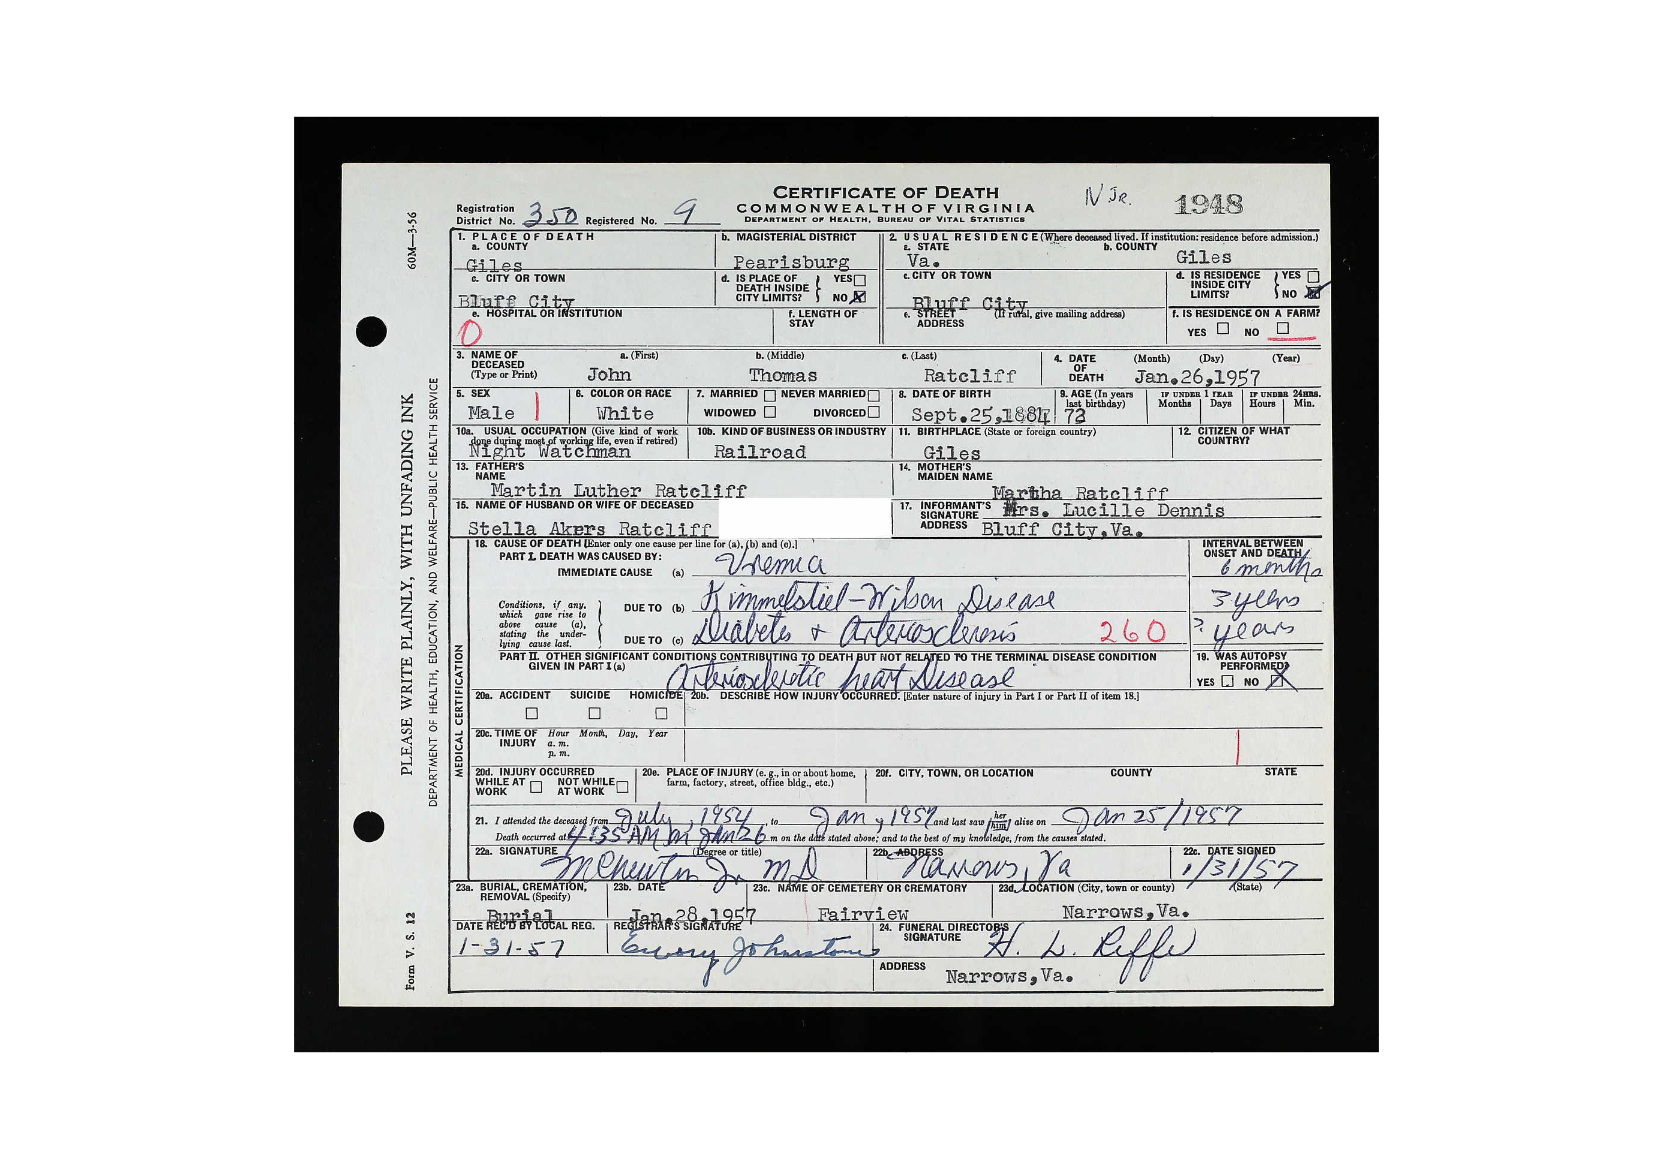 CERTIFICATE OF DEATH
COMMONWEALTH OF VIRGINIA
DEPARTMENT OF HEALTH, BUREAU OF VITAL STATISTICS
Registration District No. 350 Registered No. 9
N Jr. 1948
60M—3-56
PLEASE WRITE PLAINLY, WITH UNFADING INK
DEPARTMENT OF HEALTH, EDUCATION, AND WELFARE—PUBLIC HEALTH SERVICE
Form V. S. 12
1. PLACE OF DEATH
a. COUNTY
Giles
b. MAGISTERIAL DISTRICT
Pearisburg
2. USUAL RESIDENCE (Where deceased lived. If institution: residence before admission.)
a. STATE
Va.
b. COUNTY
Giles
c. CITY OR TOWN
Bluff City
d. IS PLACE OF DEATH INSIDE CITY LIMITS? YES NO
c. CITY OR TOWN
Bluff City
d. IS RESIDENCE INSIDE CITY LIMITS? YES NO
e. HOSPITAL OR INSTITUTION
0
f. LENGTH OF STAY
e. STREET ADDRESS (If rural, give mailing address)
f. IS RESIDENCE ON A FARM?
YES NO
3. NAME OF DECEASED (Type or Print)
a. (First) b. (Middle) c. (Last)
John Thomas Ratcliff
4. DATE OF DEATH (Month) (Day) (Year)
Jan.26,1957
5. SEX
Male
6. COLOR OR RACE
White
7. MARRIED NEVER MARRIED
WIDOWED DIVORCED
8. DATE OF BIRTH
Sept.25,1884
9. AGE (In years last birthday)
72
IF UNDER 1 YEAR
Months Days
IF UNDER 24HRS.
Hours Min.
10a. USUAL OCCUPATION (Give kind of work done during most of working life, even if retired)
Night Watchman
10b. KIND OF BUSINESS OR INDUSTRY
Railroad
11. BIRTHPLACE (State or foreign country)
Giles
12. CITIZEN OF WHAT COUNTRY?
13. FATHER'S NAME
Martin Luther Ratcliff
14. MOTHER'S MAIDEN NAME
Martha Ratcliff
15. NAME OF HUSBAND OR WIFE OF DECEASED
Stella Akers Ratcliff
17. INFORMANT'S SIGNATURE Mrs. Lucille Dennis
ADDRESS Bluff City,Va.
MEDICAL CERTIFICATION
18. CAUSE OF DEATH [Enter only one cause per line for (a), (b) and (c).]
PART I. DEATH WAS CAUSED BY:
IMMEDIATE CAUSE (a) Uremia
INTERVAL BETWEEN ONSET AND DEATH
6 months
Conditions, if any, which gave rise to above cause (a), stating the underlying cause last.
DUE TO (b) Kimmelstiel-Wilson Disease
3 years
DUE TO (c) Diabetes & Arteriosclerosis 260
? years
PART II. OTHER SIGNIFICANT CONDITIONS CONTRIBUTING TO DEATH BUT NOT RELATED TO THE TERMINAL DISEASE CONDITION GIVEN IN PART I (a)
Arteriosclerotic heart Disease
19. WAS AUTOPSY PERFORMED?
YES NO
20a. ACCIDENT SUICIDE HOMICIDE
20b. DESCRIBE HOW INJURY OCCURRED. [Enter nature of injury in Part I or Part II of item 18.]
20c. TIME OF INJURY Hour Month, Day, Year
a. m.
p. m.
20d. INJURY OCCURRED
WHILE AT WORK NOT WHILE AT WORK
20e. PLACE OF INJURY (e. g., in or about home, farm, factory, street, office bldg., etc.)
20f. CITY, TOWN, OR LOCATION COUNTY STATE
21. I attended the deceased from July, 1954, to Jan, 1957 and last saw her him alive on Jan 25/1957
Death occurred at 4:35 AM on Jan 26 m on the date stated above; and to the best of my knowledge, from the causes stated.
22a. SIGNATURE (Degree or title)
MD
22b. ADDRESS
Narrows, Va
22c. DATE SIGNED
1/31/57
23a. BURIAL, CREMATION, REMOVAL (Specify)
Burial
23b. DATE
Jan.28,1957
23c. NAME OF CEMETERY OR CREMATORY
Fairview
23d. LOCATION (City, town or county) (State)
Narrows,Va.
DATE REC'D BY LOCAL REG.
1-31-57
REGISTRAR'S SIGNATURE
Emory Johnston
24. FUNERAL DIRECTOR'S SIGNATURE
H. L. Riffe
ADDRESS
Narrows,Va.